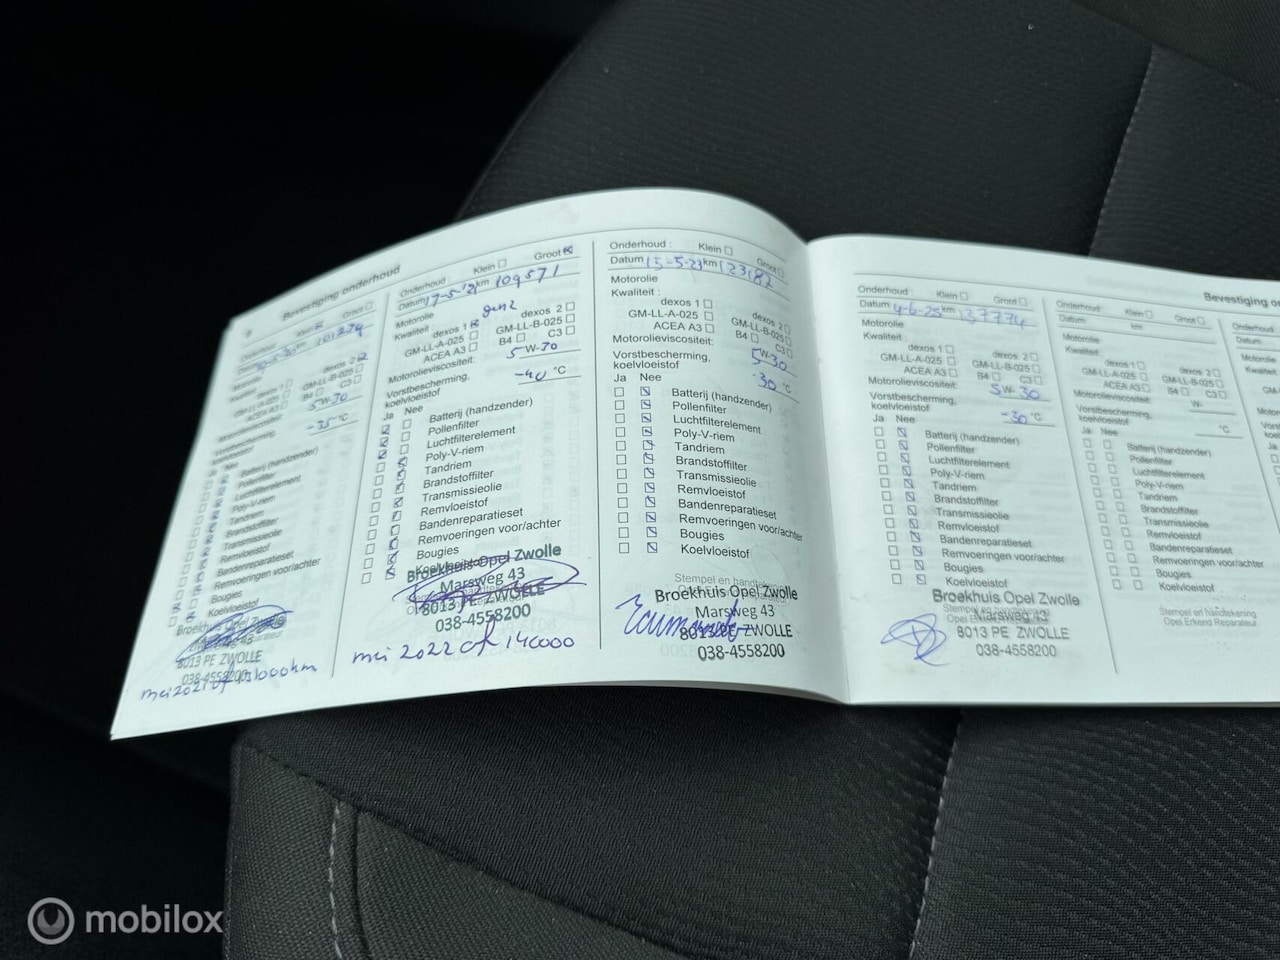 Bevestiging onderhoud
Onderhoud : Klein Groot
101274
Motorolie
Kwaliteit : dexos 1 dexos 2
GM-LL-A-025 GM-LL-B-025
ACEA A3 B4 C3
Motorolieviscositeit: 5W-30
Vorstbescherming,
koelvloeistof -35 °C
Ja Nee
Batterij (handzender)
Pollenfilter
Luchtfilterelement
Poly-V-riem
Tandriem
Brandstoffilter
Transmissieolie
Remvloeistof
Bandenreparatieset
Remvoeringen voor/achter
Bougies
Koelvloeistof
Broekhuis Opel Zwolle
Marsweg 43
8013 PE ZWOLLE
038-4558200
mei 2021 of 131000km
Onderhoud : Klein Groot
Datum 17-5-'21 km 109571
Motorolie gen2
Kwaliteit : dexos 1 dexos 2
GM-LL-A-025 GM-LL-B-025
ACEA A3 B4 C3
Motorolieviscositeit: 5W-30
Vorstbescherming,
koelvloeistof -40 °C
Ja Nee
Batterij (handzender)
Pollenfilter
Luchtfilterelement
Poly-V-riem
Tandriem
Brandstoffilter
Transmissieolie
Remvloeistof
Bandenreparatieset
Remvoeringen voor/achter
Bougies
Koelvloeistof
Broekhuis Opel Zwolle
Marsweg 43
8013 PE ZWOLLE
038-4558200
mei 2022 of 140000
Onderhoud : Klein Groot
Datum 15-5-23 km 123182
Motorolie
Kwaliteit :
dexos 1 dexos 2
GM-LL-A-025 GM-LL-B-025
ACEA A3 B4 C3
Motorolieviscositeit: 5W-30
Vorstbescherming,
koelvloeistof -30 °C
Ja Nee
Batterij (handzender)
Pollenfilter
Luchtfilterelement
Poly-V-riem
Tandriem
Brandstoffilter
Transmissieolie
Remvloeistof
Bandenreparatieset
Remvoeringen voor/achter
Bougies
Koelvloeistof
Stempel en handtekening
Broekhuis Opel Zwolle
Marsweg 43
8013 PE ZWOLLE
038-4558200
Bevestiging on
Onderhoud : Klein Groot
Datum 4-6-25 km 137774
Motorolie
Kwaliteit :
dexos 1 dexos 2
GM-LL-A-025 GM-LL-B-025
ACEA A3 B4 C3
Motorolieviscositeit: 5W-30
Vorstbescherming,
koelvloeistof -30 °C
Ja Nee
Batterij (handzender)
Pollenfilter
Luchtfilterelement
Poly-V-riem
Tandriem
Brandstoffilter
Transmissieolie
Remvloeistof
Bandenreparatieset
Remvoeringen voor/achter
Bougies
Koelvloeistof
Broekhuis Opel Zwolle
Marsweg 43
8013 PE ZWOLLE
038-4558200
Onderhoud : Klein Groot
Datum km
Motorolie
Kwaliteit :
dexos 1 dexos 2
GM-LL-A-025 GM-LL-B-025
ACEA A3 B4 C3
Motorolieviscositeit: W-
Vorstbescherming,
koelvloeistof °C
Ja Nee
Batterij (handzender)
Pollenfilter
Luchtfilterelement
Poly-V-riem
Tandriem
Brandstoffilter
Transmissieolie
Remvloeistof
Bandenreparatieset
Remvoeringen voor/achter
Bougies
Koelvloeistof
Stempel en handtekening
Opel Erkend Reparateur
Datum
mobilox